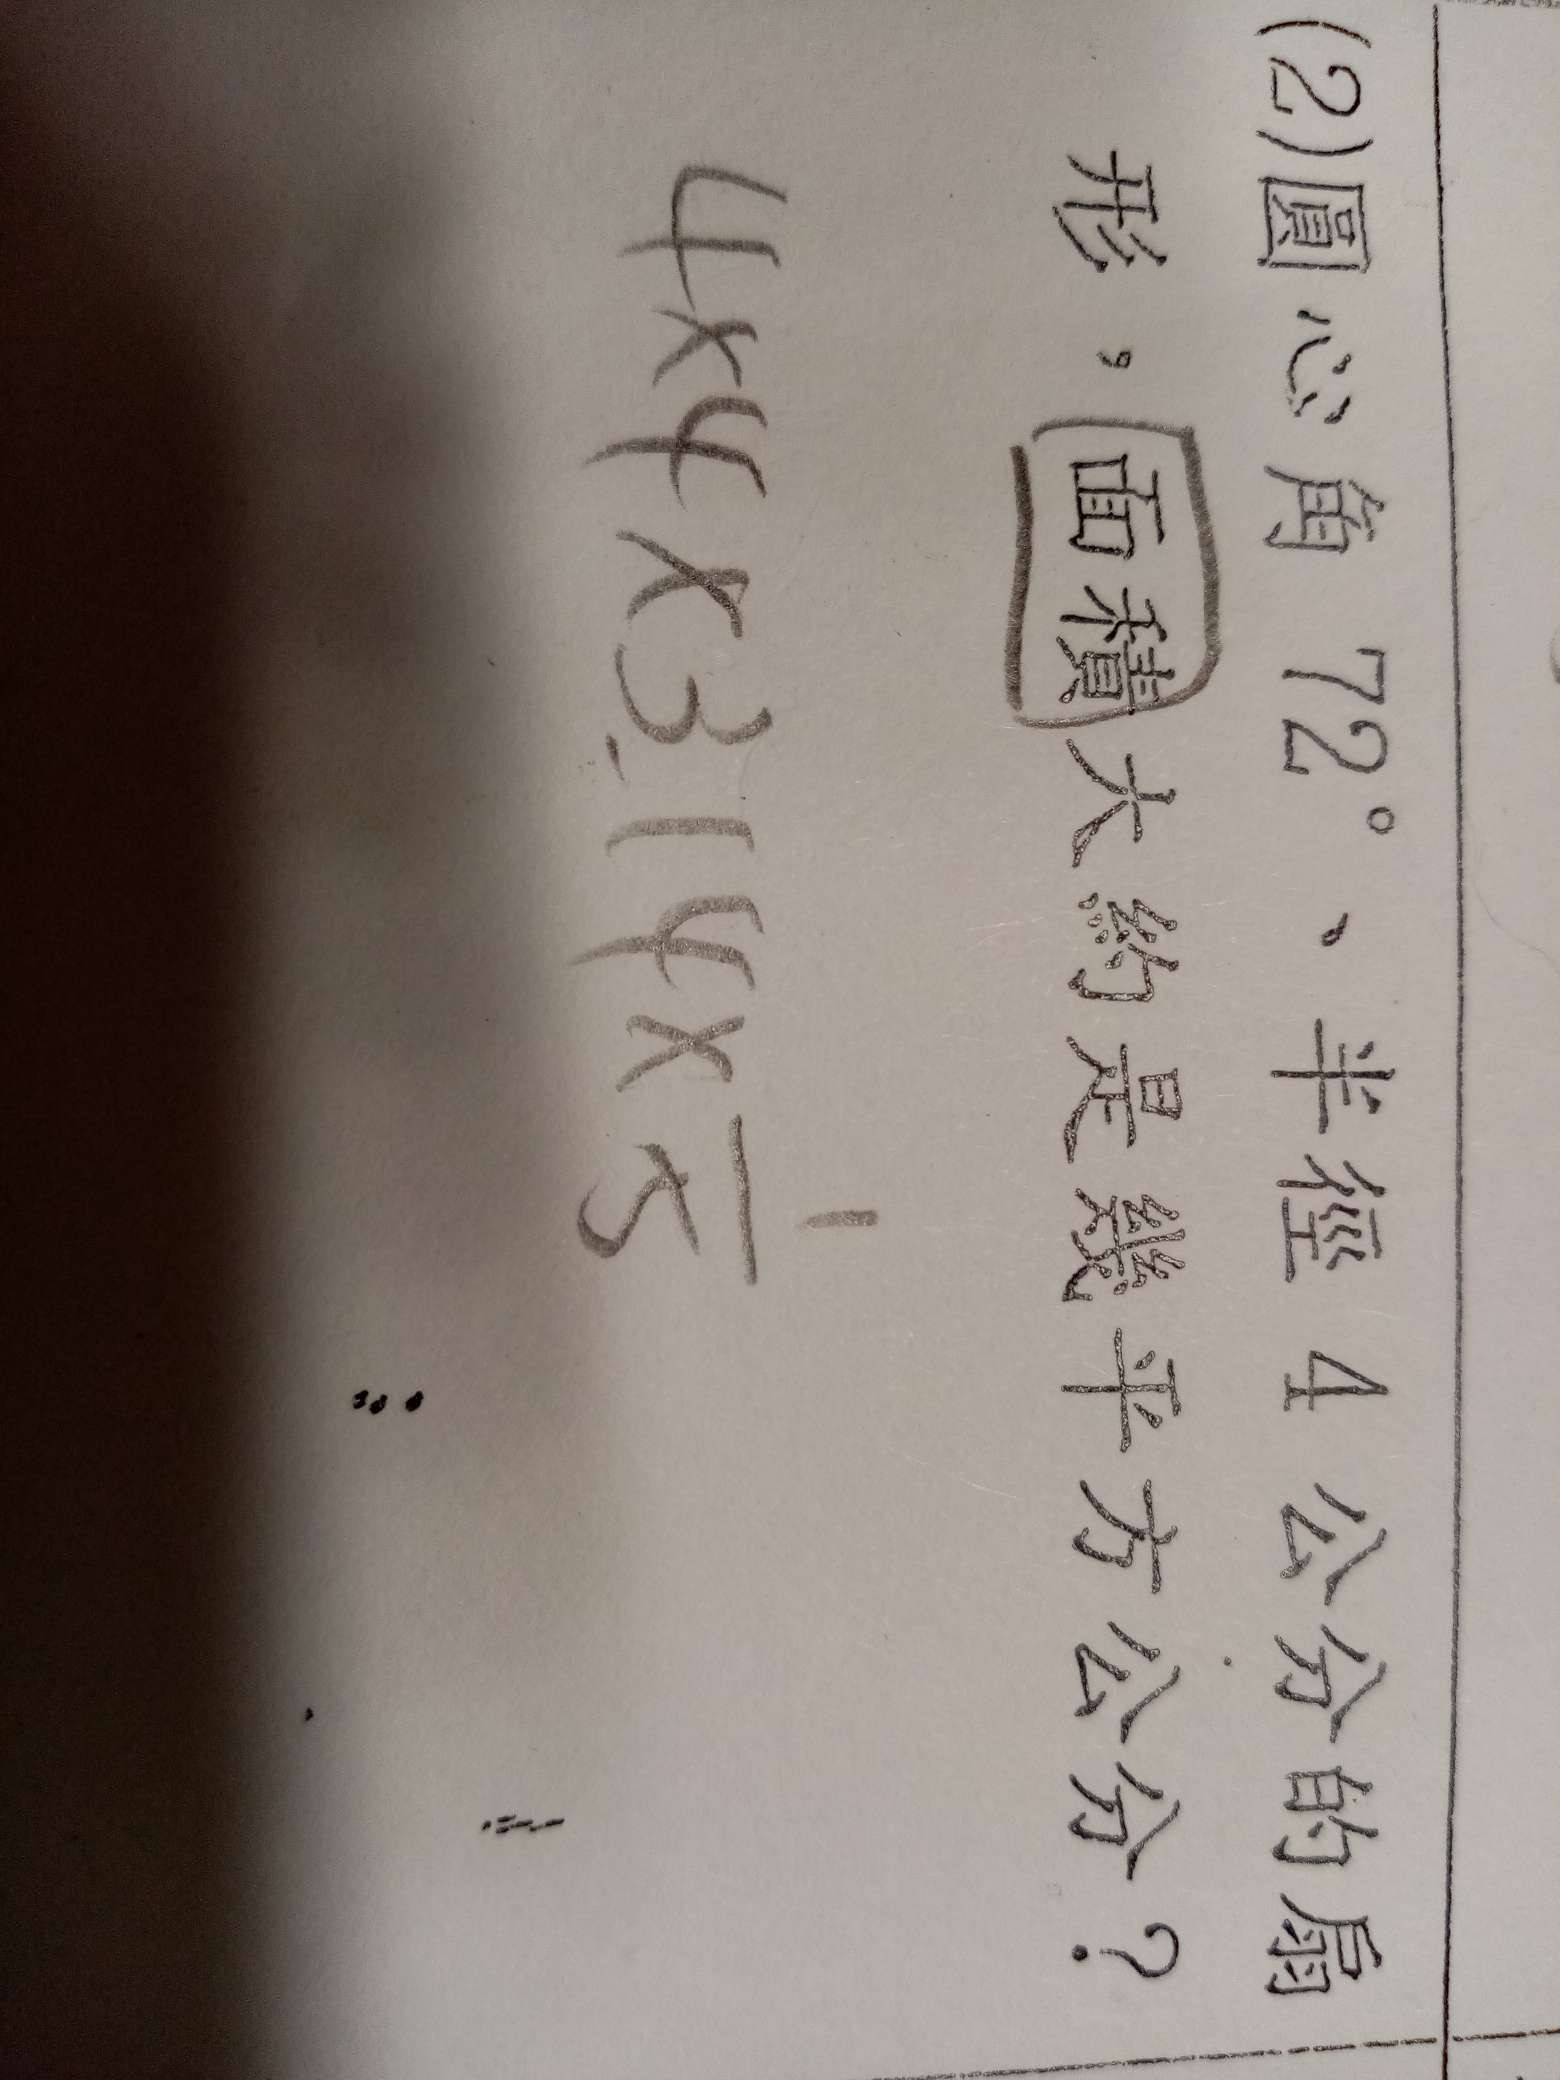 (2)圓心角 72°、半徑 4 公分的扇
形，面積大約是幾平方公分？
4×4×3.14×1/5